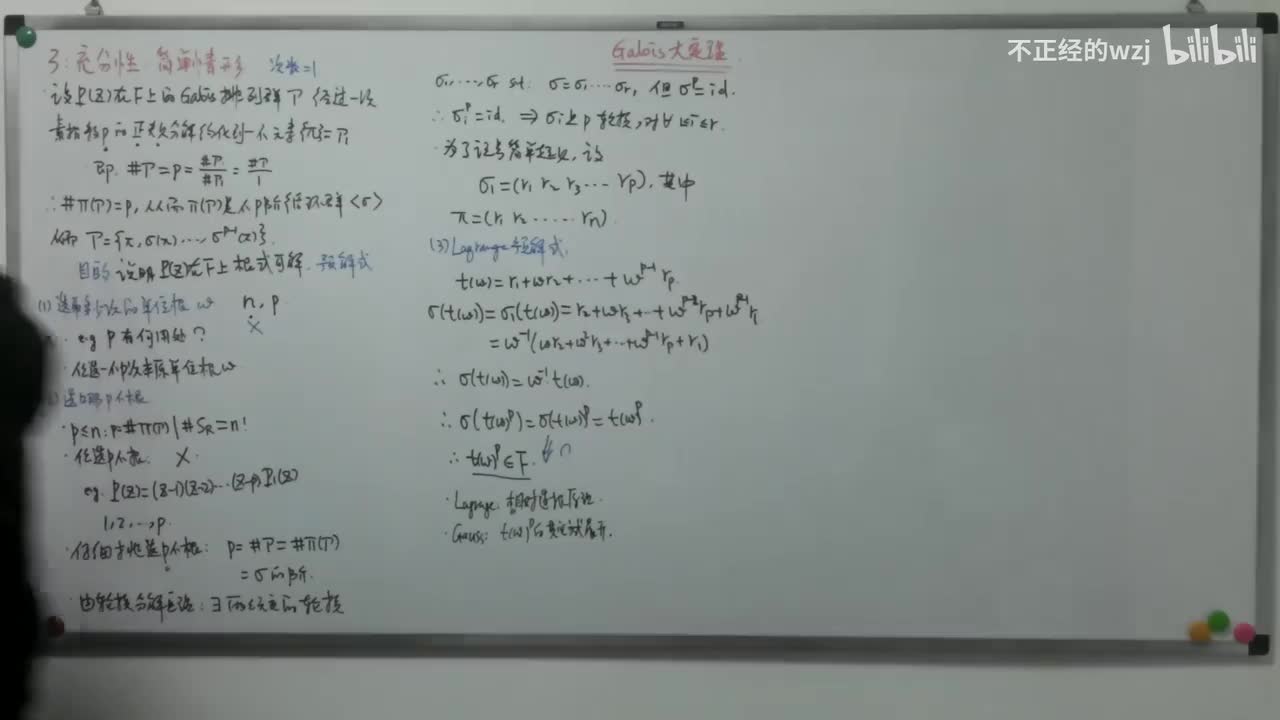 不正经的wzj bilibili
Galois大定理
3: 充分性 简单情形 次数=1
·设P(Z)在F上的Galois排列群T 经过一次
素指数p的正规分解约化到一个元素优 T₁
即. #T=p=#T/#T₁=#T/1
∴#π(T)=p, 从而π(T)是个p阶循环群<σ>
从而 T={π,σ(π),…,σᵖ⁻¹(π)}.
目的 说明P(Z)在F上根式可解. 预解式
(1) 选哪多少次的单位根 ω n, p
×
· eg p有何用处?
· 任选一个p次本原单位根ω
选哪p个根
·p≤n: p=#π(T)|#S_R=n!
·任选p个根. ×.
eg. P(Z)=(Z-1)(Z-2)…(Z-p)P₁(Z)
1,2,…,p.
·仔细方法选p个根: p=#T=#π(T)
=σ的阶.
·由轮换分解定理: ∃ 的轮换
σ₁,…,σᵣ st. σ=σ₁…σᵣ, 但σᵖ=id.
∴σᵢᵖ=id. ⇒ σᵢ是p轮换, 对∀1≤i≤r.
·为了记号简单起见, 设
σ₁=(r₁ r₂ r₃… rₚ), 其中
π=(r₁ r₂ …… rₙ).
(3) Lagrange预解式.
t(ω)=r₁+ωr₂+…+ωᵖ⁻¹rₚ
σ(t(ω))=σ₁(t(ω))=r₂+ωr₃+…+ωᵖ⁻²rₚ+ωᵖ⁻¹r₁
=ω⁻¹(ωr₂+ω²r₃+…+ωᵖ⁻¹rₚ+r₁)
∴ σ(t(ω))=ω⁻¹t(ω).
∴ σ(t(ω)ᵖ)=σ(t(ω))ᵖ=t(ω)ᵖ.
∴ t(ω)ᵖ∈F.
·Lagrange:
·Gauss: t(ω)ᵖ的 展开.